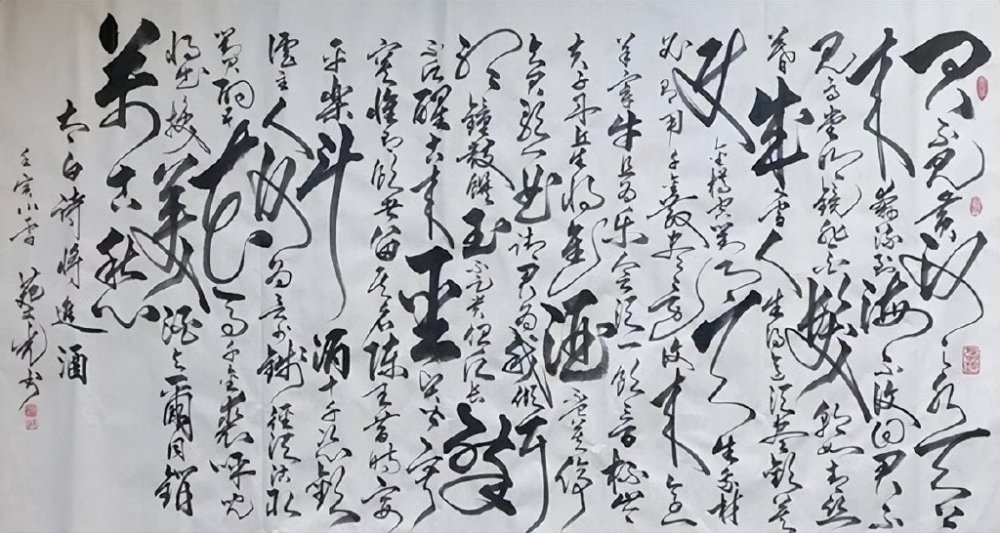 君不见黄河之水天上
来奔流到海不復回君不
见高堂明镜悲白髮朝如青丝
暮成雪人生得意须尽歡莫
使金樽空对月天生我材
必有用千金散尽还復来烹
羊宰牛且为乐会须一饮三百杯岑
夫子丹丘生将進酒杯莫停
与君歌一曲请君为我倾耳
听钟鼓馔玉不足贵但愿长醉
不復醒古来圣贤皆寂
寞惟有饮者留其名陈王昔时宴
平樂斗酒十千恣歡
谑主人何为言少钱径须沽取
对君酌五花马千金裘呼儿
将出换美酒与尔同销
万古愁
太白诗将進酒
壬寅小雪 书